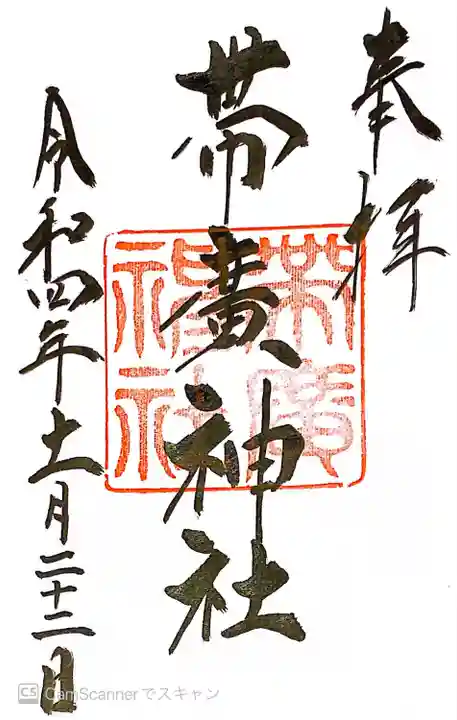 奉拝
帯廣神社
帯廣神社
令和四年十一月二十三日
CS CamScannerでスキャン